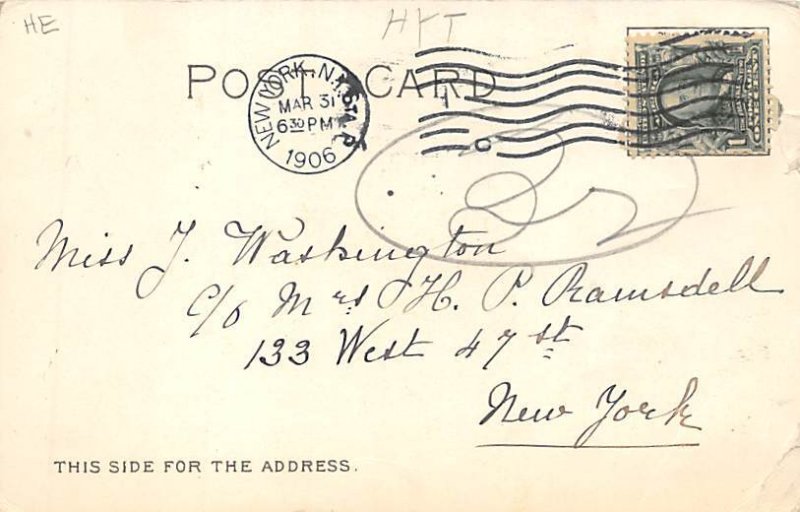 HE
HYT
POST CARD
NEW YORK, N.Y. STA. P.
MAR 31
6 30 PM
1906
1
Miss J. Washington
c/o Mrs H. P. Ramsdell
133 West 47 st
New York
THIS SIDE FOR THE ADDRESS.